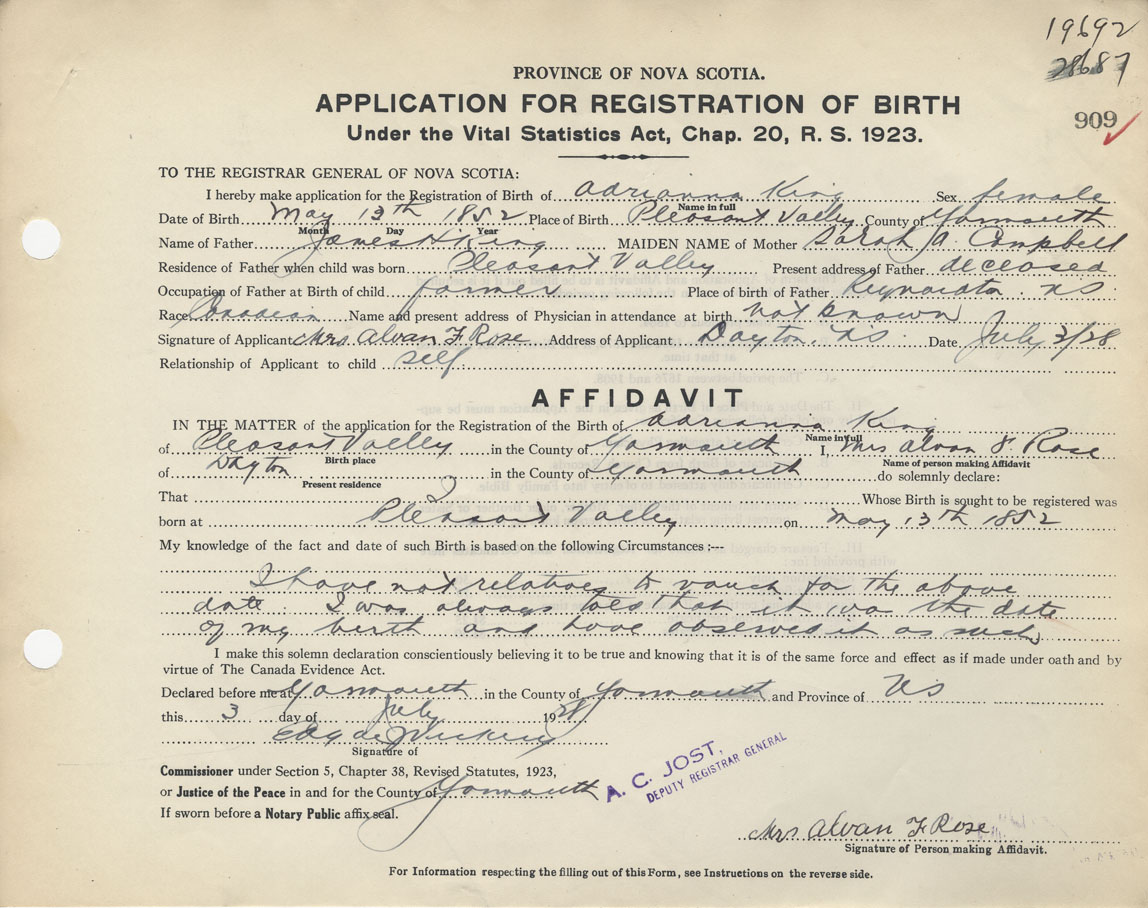 19692
28687
PROVINCE OF NOVA SCOTIA.
APPLICATION FOR REGISTRATION OF BIRTH
909
Under the Vital Statistics Act, Chap. 20, R. S. 1923.
TO THE REGISTRAR GENERAL OF NOVA SCOTIA:
I hereby make application for the Registration of Birth of Adrianna King Sex female
Name in full
Date of Birth May 13th 1852 Place of Birth Pleasant Valley County of Yarmouth
Month Day Year
Name of Father James H King MAIDEN NAME of Mother Sarah A. Campbell
Residence of Father when child was born Pleasant Valley Present address of Father deceased
Occupation of Father at Birth of child farmer Place of birth of Father Reynardton NS
Race Canadian Name and present address of Physician in attendance at birth not known
Signature of Applicant Mrs Alvan F Rose Address of Applicant Dayton, NS Date July 3/28
Relationship of Applicant to child self
AFFIDAVIT
IN THE MATTER of the application for the Registration of the Birth of Adrianna King
Name in full
of Pleasant Valley in the County of Yarmouth I, Mrs Alvan F. Rose
Birth place Name of person making Affidavit
of Dayton in the County of Yarmouth do solemnly declare:
Present residence
That I Whose Birth is sought to be registered was
born at Pleasant Valley on May 13th 1852
My knowledge of the fact and date of such Birth is based on the following Circumstances :---
I have not relatives to vouch for the above
date. I was always told that it was the date
of my birth and have observed it as such
I make this solemn declaration conscientiously believing it to be true and knowing that it is of the same force and effect as if made under oath and by
virtue of The Canada Evidence Act.
Declared before me at Yarmouth in the County of Yarmouth and Province of NS
this 3 day of July 1928
Signature of
Commissioner under Section 5, Chapter 38, Revised Statutes, 1923,
or Justice of the Peace in and for the County of Yarmouth
If sworn before a Notary Public affix seal.
A. C. JOST,
DEPUTY REGISTRAR GENERAL
Mrs Alvan F Rose
Signature of Person making Affidavit.
For Information respecting the filling out of this Form, see Instructions on the reverse side.